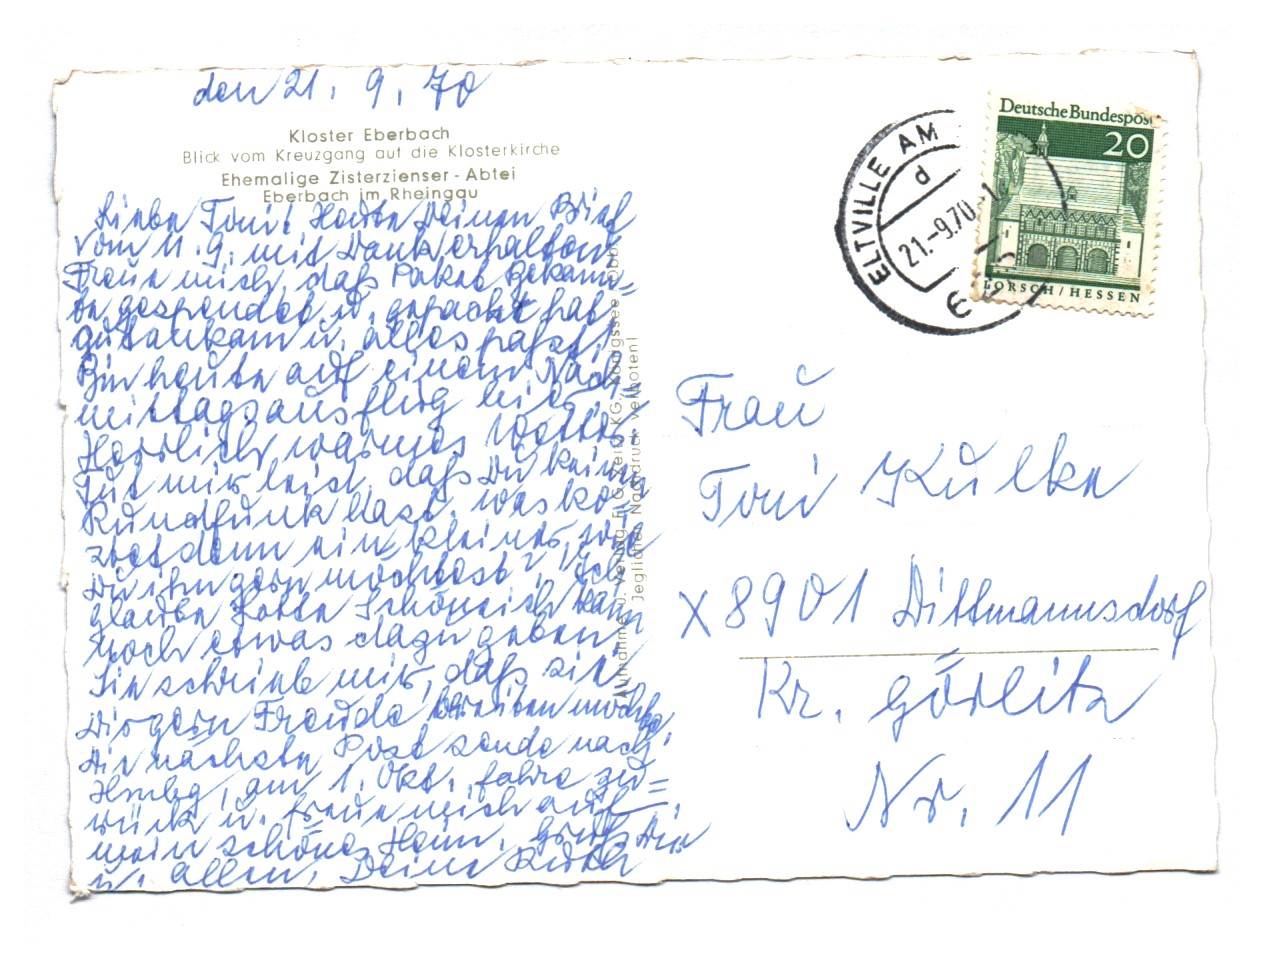 den 21. 9. 70
Kloster Eberbach
Blick vom Kreuzgang auf die Klosterkirche
Ehemalige Zisterzienser-Abtei
Eberbach im Rheingau
Liebe Toni! Habe Deinen Brief
vom 11. 9. mit Dank erhalten
Freue mich, daß Paket
gespendet u. gepackt hat
gut ankam u. alles paßt.
Bin heute auf einem Nach-
mittagsausflug hier.
Herrlich warmes Wetter
Tut mir leid, daß Du keinen
Rundfunk hast. was ko-
stet denn ein kleiner, wie
Du ihn gern möchtest? Ich
glaube Lotte Schönrich kann
noch etwas dazu geben.
Sie schrieb mir, daß sie
Dir gern Freude bereiten möchte,
Die nächste Post sende nach
Hmbg, am 1. Okt. fahre zu=
rück u. freue mich auf
mein schönes Heim. Grüß Dich
u. allen, Deine Ruth
Aufnahme u. Verlag F. G. Zeitz KG., Königssee/Obb.
Jeglicher Nachdruck verboten!
ELTVILLE AM
d
21.-9.70
Deutsche Bundespost
20
LORSCH/HESSEN
Frau
Toni Kulke
X 8901 Dittmannsdorf
Kr. Görlitz
Nr. 11